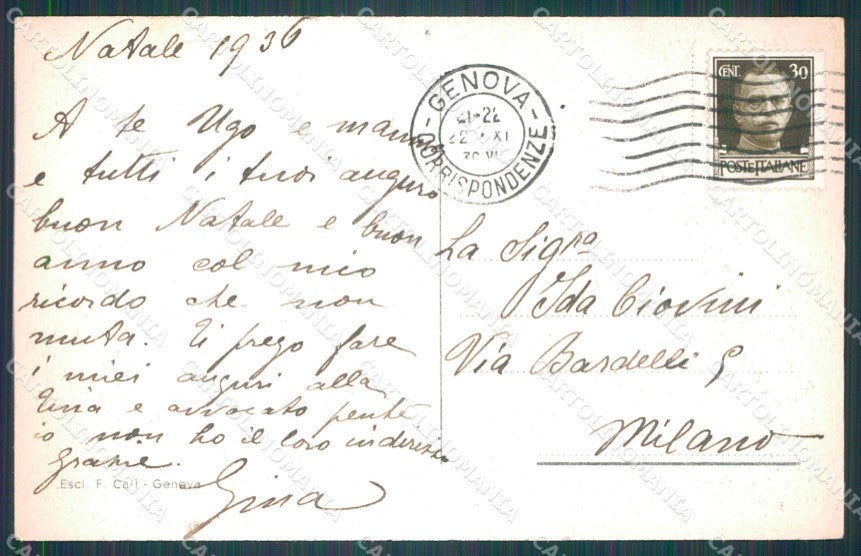 Natale 1936
A te Ugo e mamma
e tutti i tuoi auguro
buon Natale e buon
anno col mio
ricordo che non
muta. Ti prego fare
i miei auguri alla
e avvocato
io non ho il loro indirizzo
grazie.
Gina
Escl. F. Calì - Genova
GENOVA
21-22
22
CORRISPONDENZE
CENT. 30
POSTE ITALIANE
La Sigra
Ida Ciovini
Via Bardelli 9
Milano
CARTOLINOMANIA